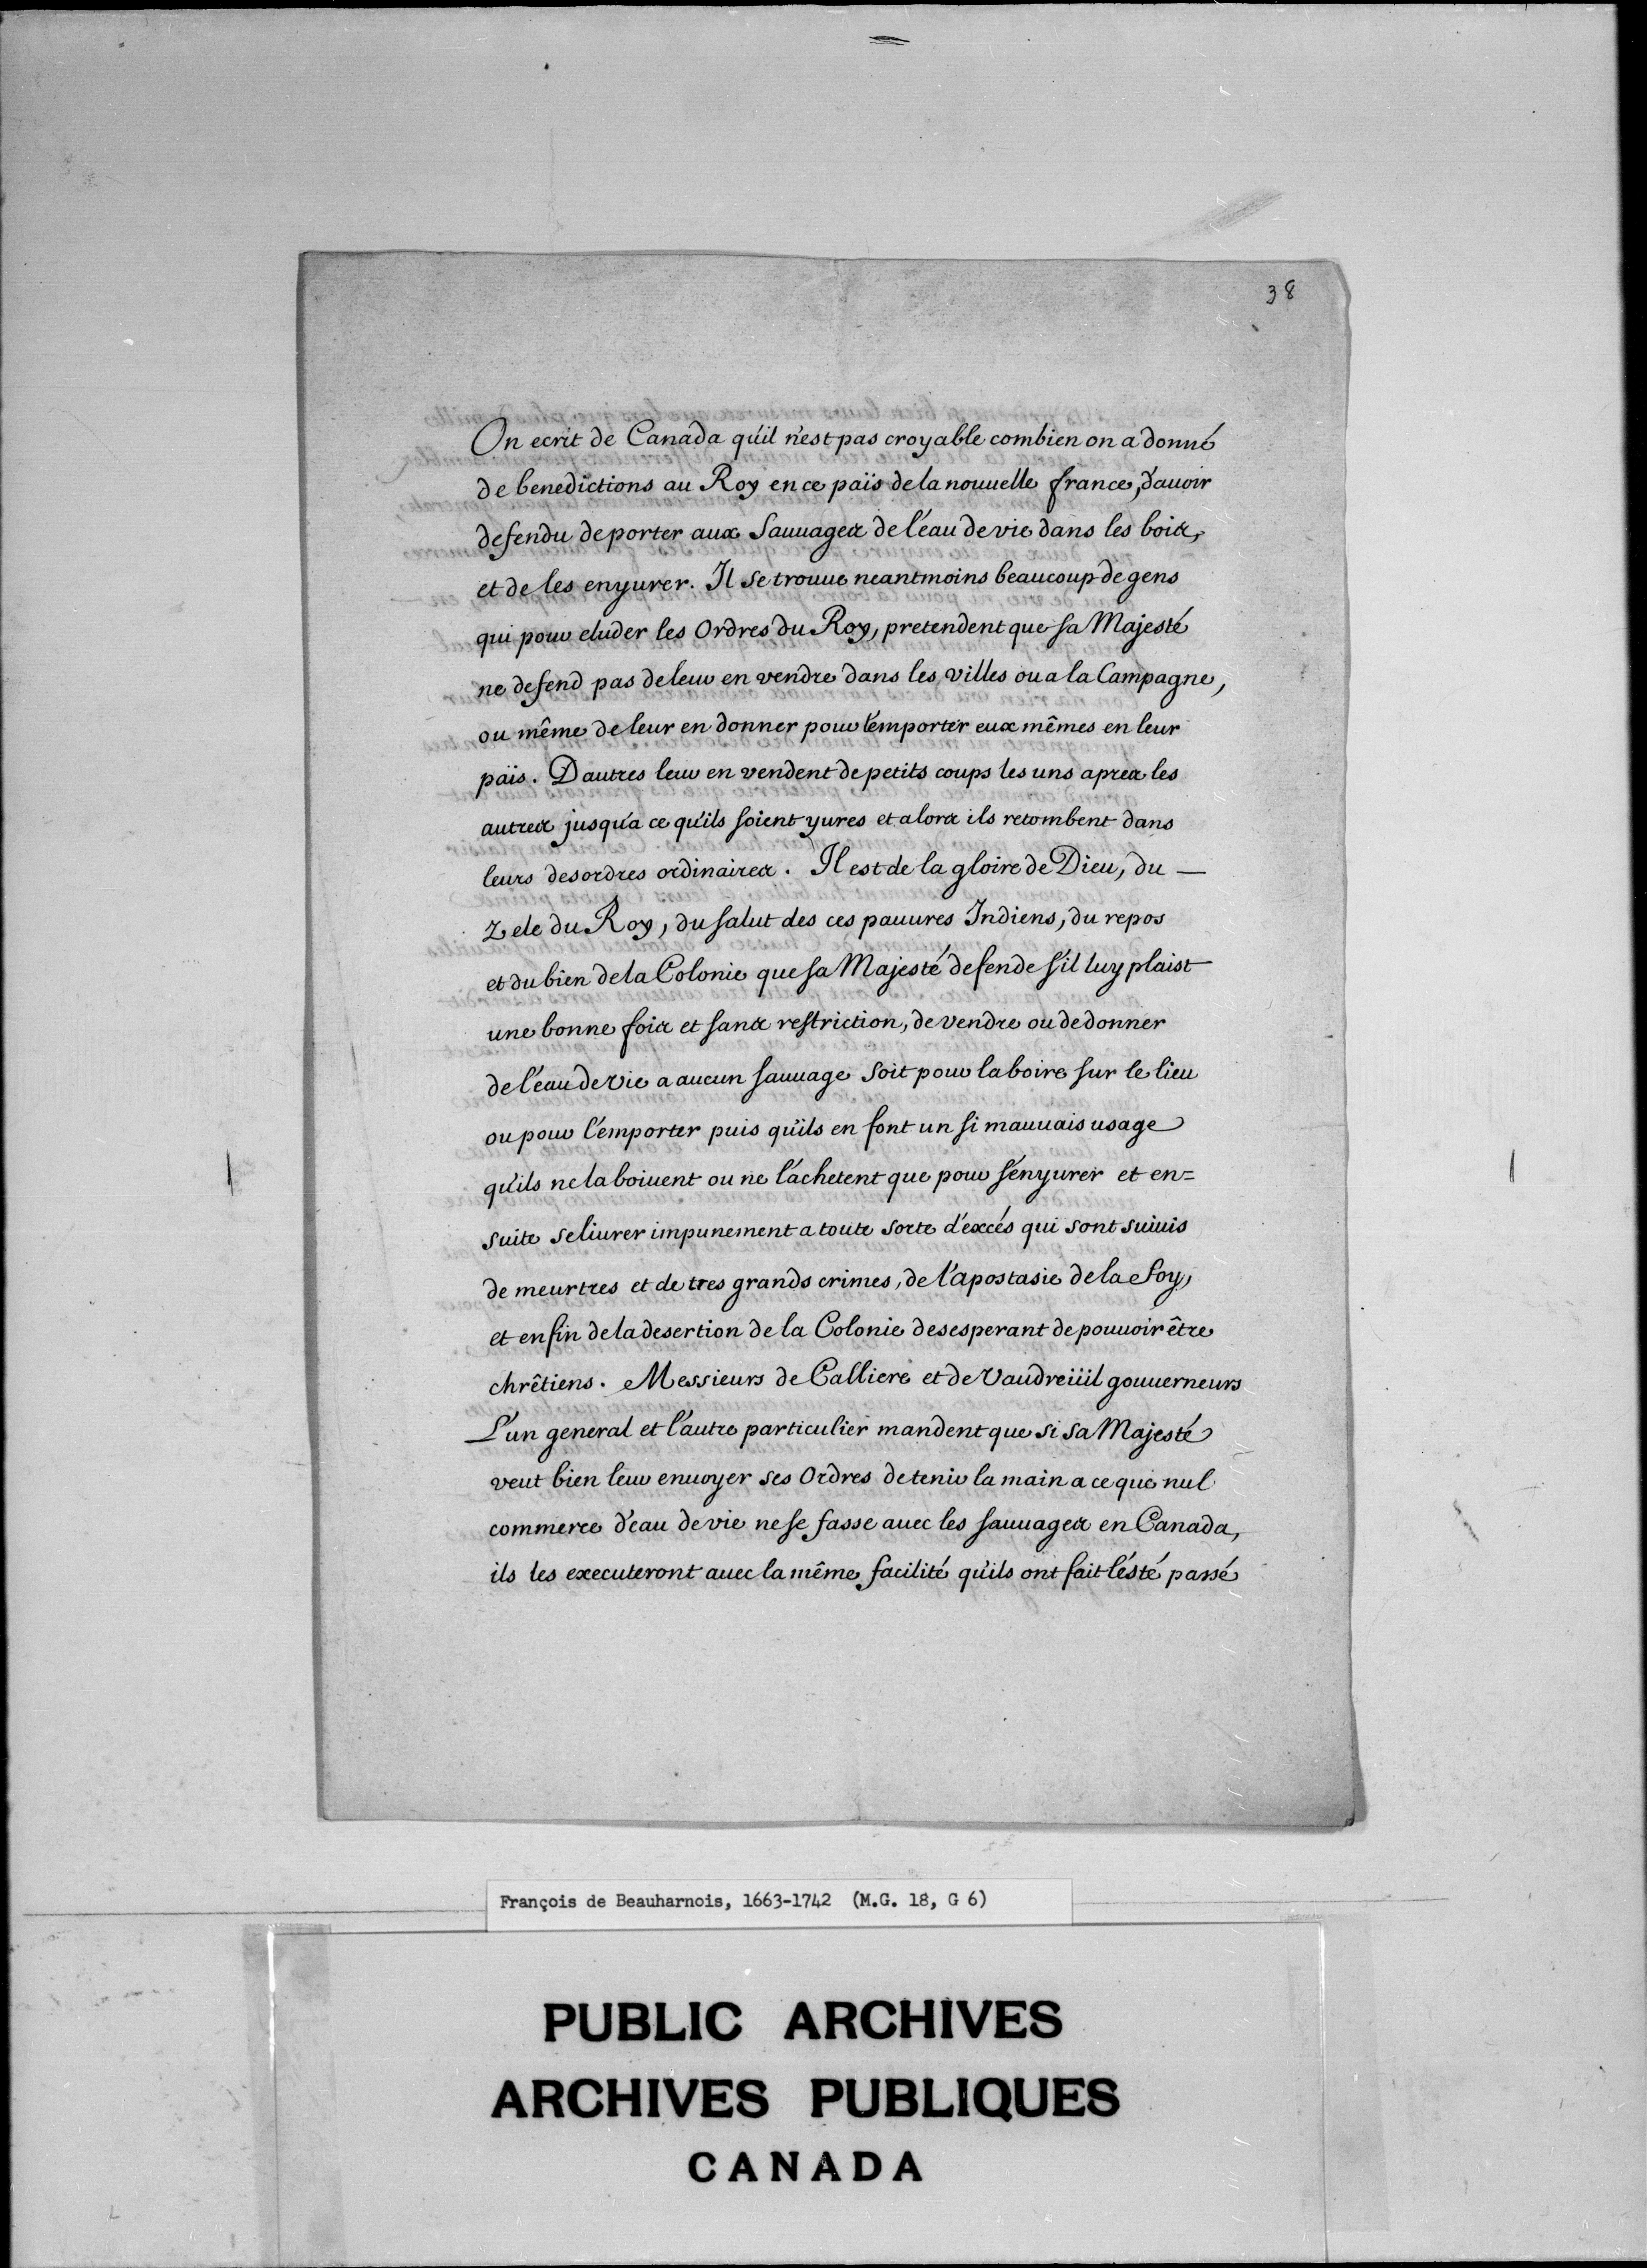 38
On ecrit de Canada qu'il n'est pas croyable combien on a donné
de benedictions au Roy en ce païs de la nouuelle france, d'auoir
defendu de porter aux Sauuages de l'eau de vie dans les bois,
et de les enyurer. Il se trouue neantmoins beaucoup de gens
qui pour eluder les Ordres du Roy, pretendent que sa Majesté
ne defend pas de leur en vendre dans les villes ou a la Campagne,
ou même de leur en donner pour l'emporter eux mêmes en leur
païs. D'autres leur en vendent de petits coups les uns apres les
autres jusqu'a ce qu'ils soient yures et alors ils retombent dans
leurs desordres ordinaires. Il est de la gloire de Dieu, du —
zele du Roy, du salut des ces pauures Indiens, du repos
et du bien de la Colonie que sa Majesté defende s'il luy plaist
une bonne fois et sans restriction, de vendre ou de donner
de l'eau de vie a aucun sauuage soit pour la boire sur le lieu
ou pour l'emporter puis qu'ils en font un si mauuais usage
qu'ils ne la boiuent ou ne l'achetent que pour s'enyurer et en=
suite se liurer impunement a toute sorte d'excés qui sont suiuis
de meurtres et de tres grands crimes, de l'apostasie de la foy,
et enfin de la desertion de la Colonie desesperant de pouuoir être
chrêtiens. Messieurs de Calliere et de Vaudreüil gouuerneurs
L'un general et l'autre particulier mandent que si sa Majesté
veut bien leur enuoyer ses Ordres de tenir la main a ce que nul
commerce d'eau de vie ne se fasse auec les sauuages en Canada,
ils les executeront auec la même facilité qu'ils ont fait l'esté passé
François de Beauharnois, 1663-1742 (M.G. 18, G 6)
PUBLIC ARCHIVES
ARCHIVES PUBLIQUES
CANADA